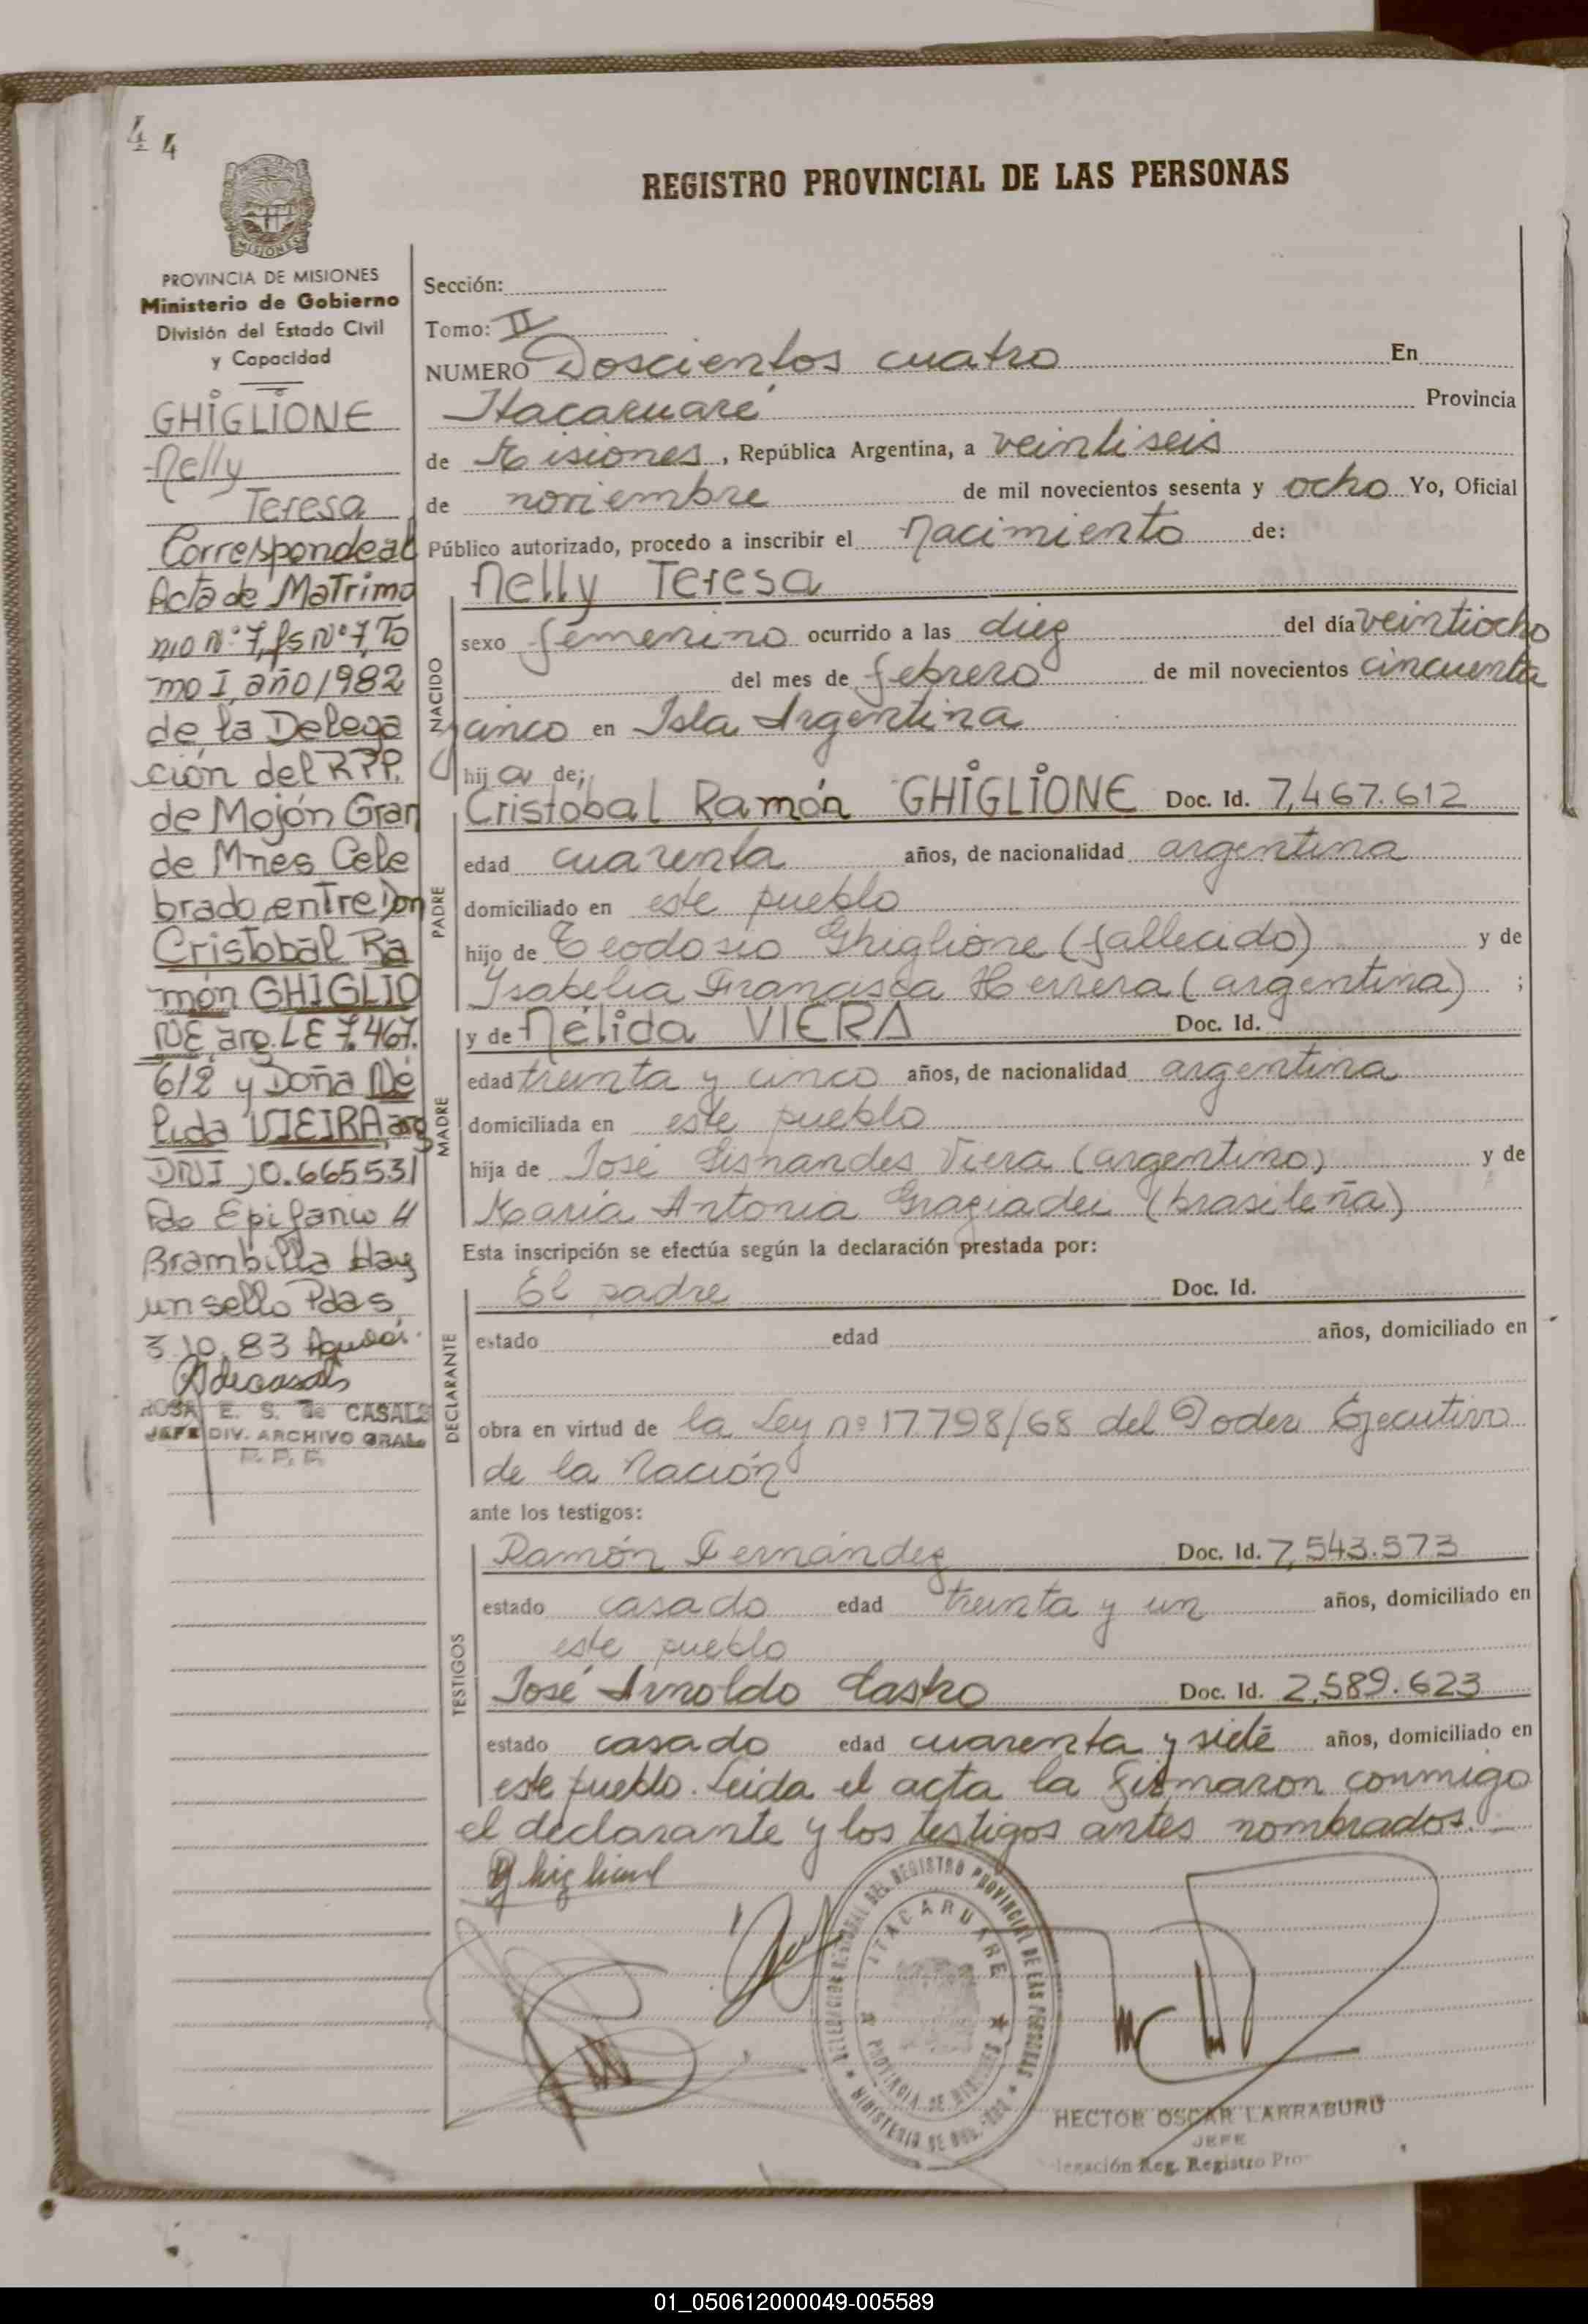 44
REGISTRO PROVINCIAL DE LAS PERSONAS
MISIONES
PROVINCIA DE MISIONES
Ministerio de Gobierno
División del Estado Civil
y Capacidad
GHIGLIONE
Nelly
Teresa
Corresponde al
Acta de Matrimo
nio Nº 7, fs Nº 7, To
mo I, año 1982
de la Delega
ción del RPP.
de Mojón Gran
de Mnes Cele
brado, entre Don
Cristobal Ra
món GHIGLIO
NE, arg. LE 7.467.
612 y Doña Né
lida VIEIRA, arg
DNI 10.665531
Fdo Epifanio H
Brambilla Hay
un sello Pdas
3.10.83
ROSA E. S. de CASALS
JEFE DIV. ARCHIVO GRAL.
R. P. P.
Sección:
Tomo: II
NUMERO Doscientos cuatro En
Itacaruaré Provincia
de Misiones, República Argentina, a veintiseis
de noviembre de mil novecientos sesenta y ocho Yo, Oficial
Público autorizado, procedo a inscribir el nacimiento de:
Nelly Teresa
NACIDO
sexo femenino ocurrido a las diez del día veintiocho
del mes de febrero de mil novecientos cincuenta
y cinco en Isla Argentina
hij a de;
PADRE
Cristobal Ramón GHIGLIONE Doc. Id. 7,467.612
edad cuarenta años, de nacionalidad argentina
domiciliado en este pueblo
hijo de Teodosio Ghiglione (fallecido) y de
Isabelia Francisca Herrera (argentina) ;
MADRE
y de Nélida VIERA Doc. Id.
edad treinta y cinco años, de nacionalidad argentina
domiciliada en este pueblo
hija de José Lisnandes Viera (argentino) y de
María Antonia Graziadei (brasileña)
Esta inscripción se efectúa según la declaración prestada por:
DECLARANTE
El padre Doc. Id.
estado edad años, domiciliado en
obra en virtud de la Ley nº 17.798/68 del Poder Ejecutivo
de la Nación
ante los testigos:
TESTIGOS
Ramón Fernández Doc. Id. 7,543.573
estado casado edad treinta y un años, domiciliado en
este pueblo
José Arnoldo Castro Doc. Id. 2,589.623
estado casado edad cuarenta y siete años, domiciliado en
este pueblo. Leida el acta la firmaron conmigo
el declarante y los testigos antes nombrados.
Ghiglione
DELEGACION REGIONAL DEL REGISTRO PROVINCIAL DE LAS PERSONAS
ITACARUARE
PROVINCIA DE MISIONES
MINISTERIO DE GOBIERNO
HECTOR OSCAR LARRABURU
JEFE
legación Reg. Registro Pro
01_050612000049-005589